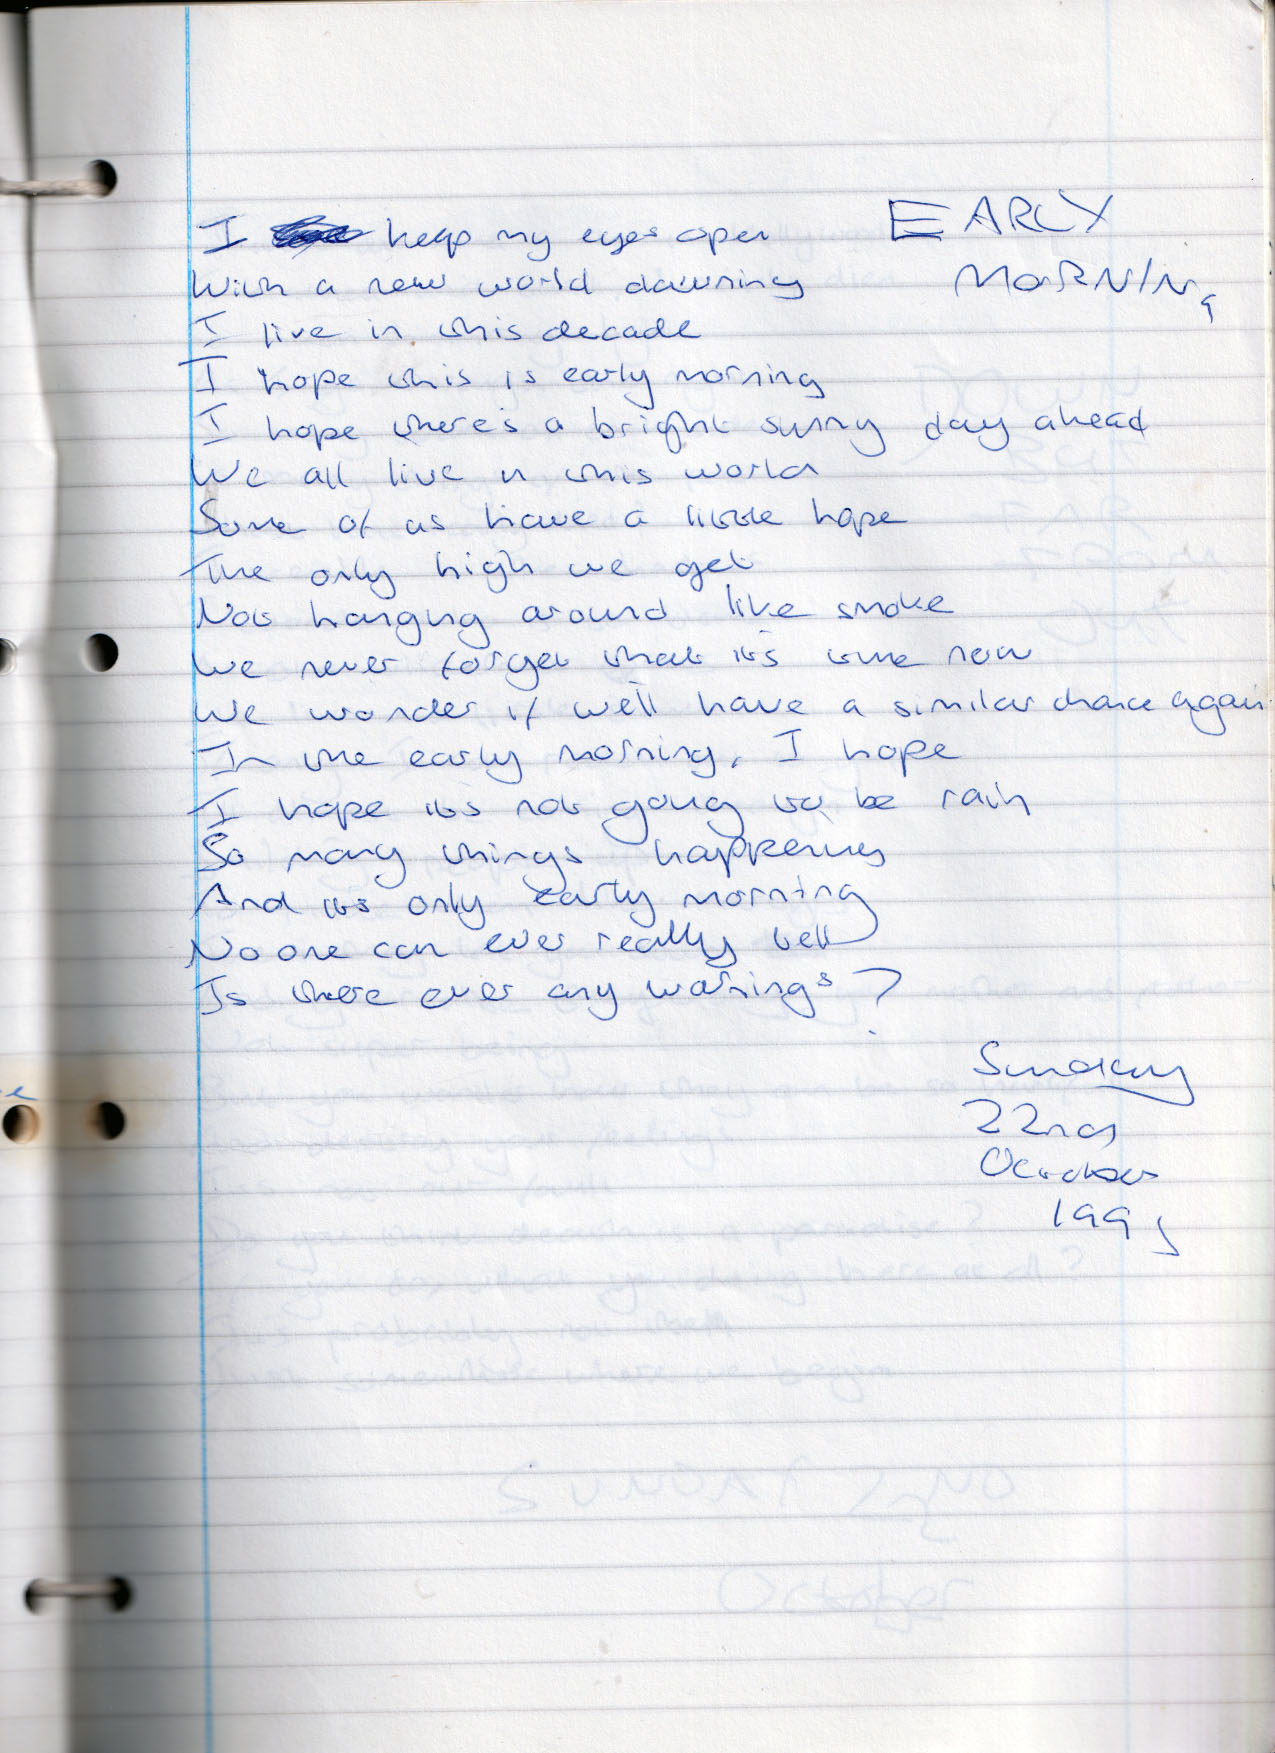 EARLY
MORNING
I keep my eyes open
With a new world dawning
I live in this decade
I hope this is early morning
I hope there's a bright sunny day ahead
We all live in this world
Some of us have a little hope
The only high we get
Not hanging around like smoke
We never forget what it's time now
We wonder if we'll have a similar chance again
In the early morning, I hope
I hope it's not going to be rain
So many things happening
And its only early morning
No one can ever really tell
Is there ever any warnings?
Sunday
22nd
October
199